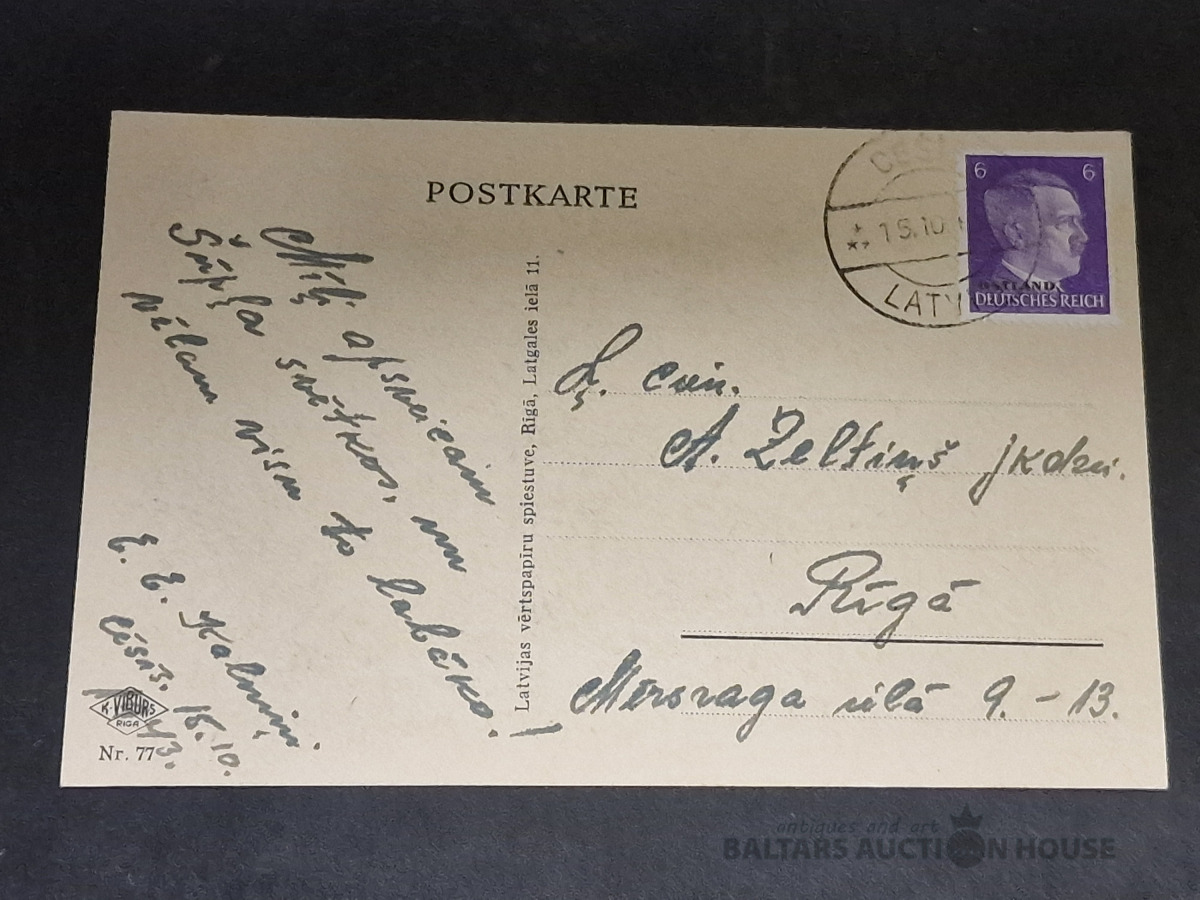 POSTKARTE
CĒS
15.10
LATV
6 6
OSTLAND
DEUTSCHES REICH
Mīļi apsveicam
Šūpļa svētkos, un
vēlam visu to labāko!
E. E. Kalniņi.
Cēsīs. 15. 10.
43.
K. VIBURS
RIGA
Nr. 77
Latvijas vērtspapīru spiestuve, Rīgā, Latgales ielā 11.
Ļ. cien.
A. Zeltiņš jkdzei.
Rīgā
Mērsraga ielā 9. - 13.
antiques and art
BALTARS AUCTION HOUSE